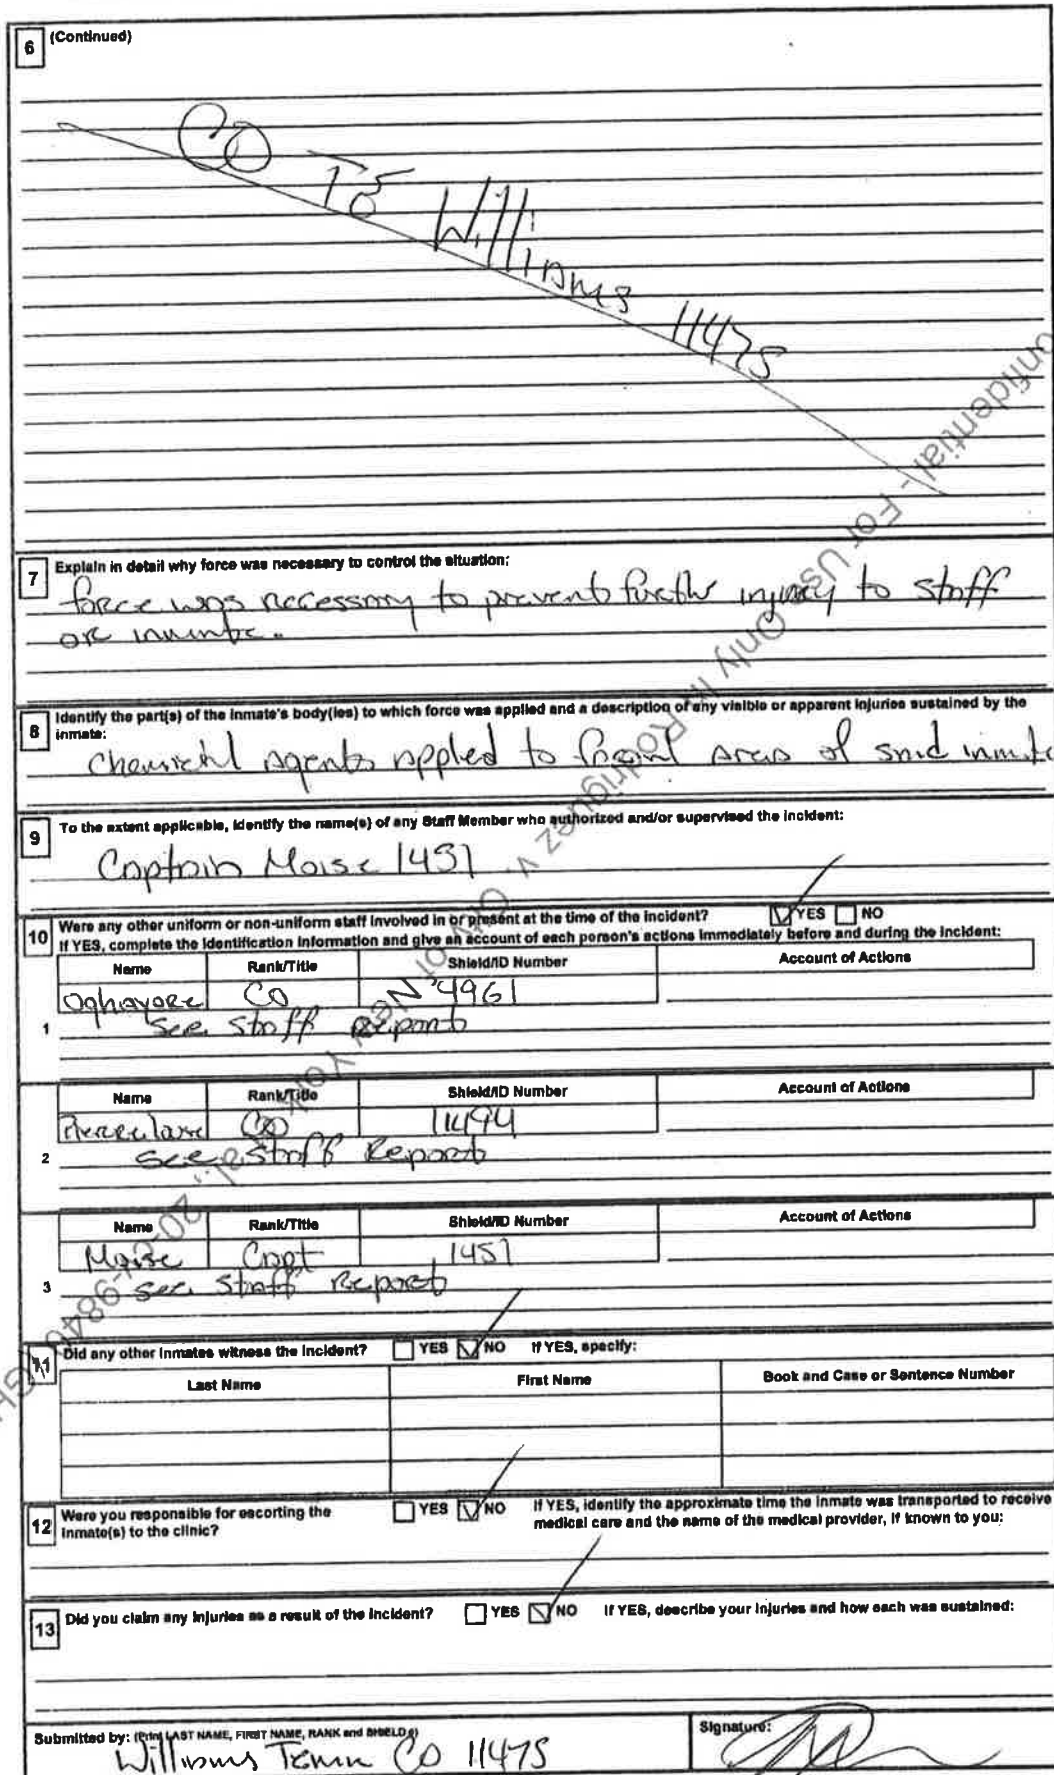 6 (Continued)
CO T Williams 11475
7 Explain in detail why force was necessary to control the situation:
force was necessary to prevent further injury to staff
or inmate.
8 Identify the part(s) of the inmate's body(ies) to which force was applied and a description of any visible or apparent injuries sustained by the
inmate:
Chemical agents applied to facial areas of said inmate
9 To the extent applicable, identify the name(s) of any Staff Member who authorized and/or supervised the incident:
Captain Moise 1451
10 Were any other uniform or non-uniform staff involved in or present at the time of the incident? YES NO
If YES, complete the identification information and give an account of each person's actions immediately before and during the incident:
Name Rank/Title Shield/ID Number Account of Actions
CO 4961
1 see staff Report
Name Rank/Title Shield/ID Number Account of Actions
CO 11494
2 see staff Report
Name Rank/Title Shield/ID Number Account of Actions
Moise Capt 1451
3 see staff Report
11 Did any other inmates witness the incident? YES NO If YES, specify:
Last Name First Name Book and Case or Sentence Number
12 Were you responsible for escorting the YES NO If YES, identify the approximate time the inmate was transported to receive
inmate(s) to the clinic? medical care and the name of the medical provider, if known to you:
13 Did you claim any injuries as a result of the incident? YES NO If YES, describe your injuries and how each was sustained:
Submitted by: (Print LAST NAME, FIRST NAME, RANK and SHIELD #) Signature:
Williams CO 11475
Confidential - For Use Only in Rodriguez v. City of New York